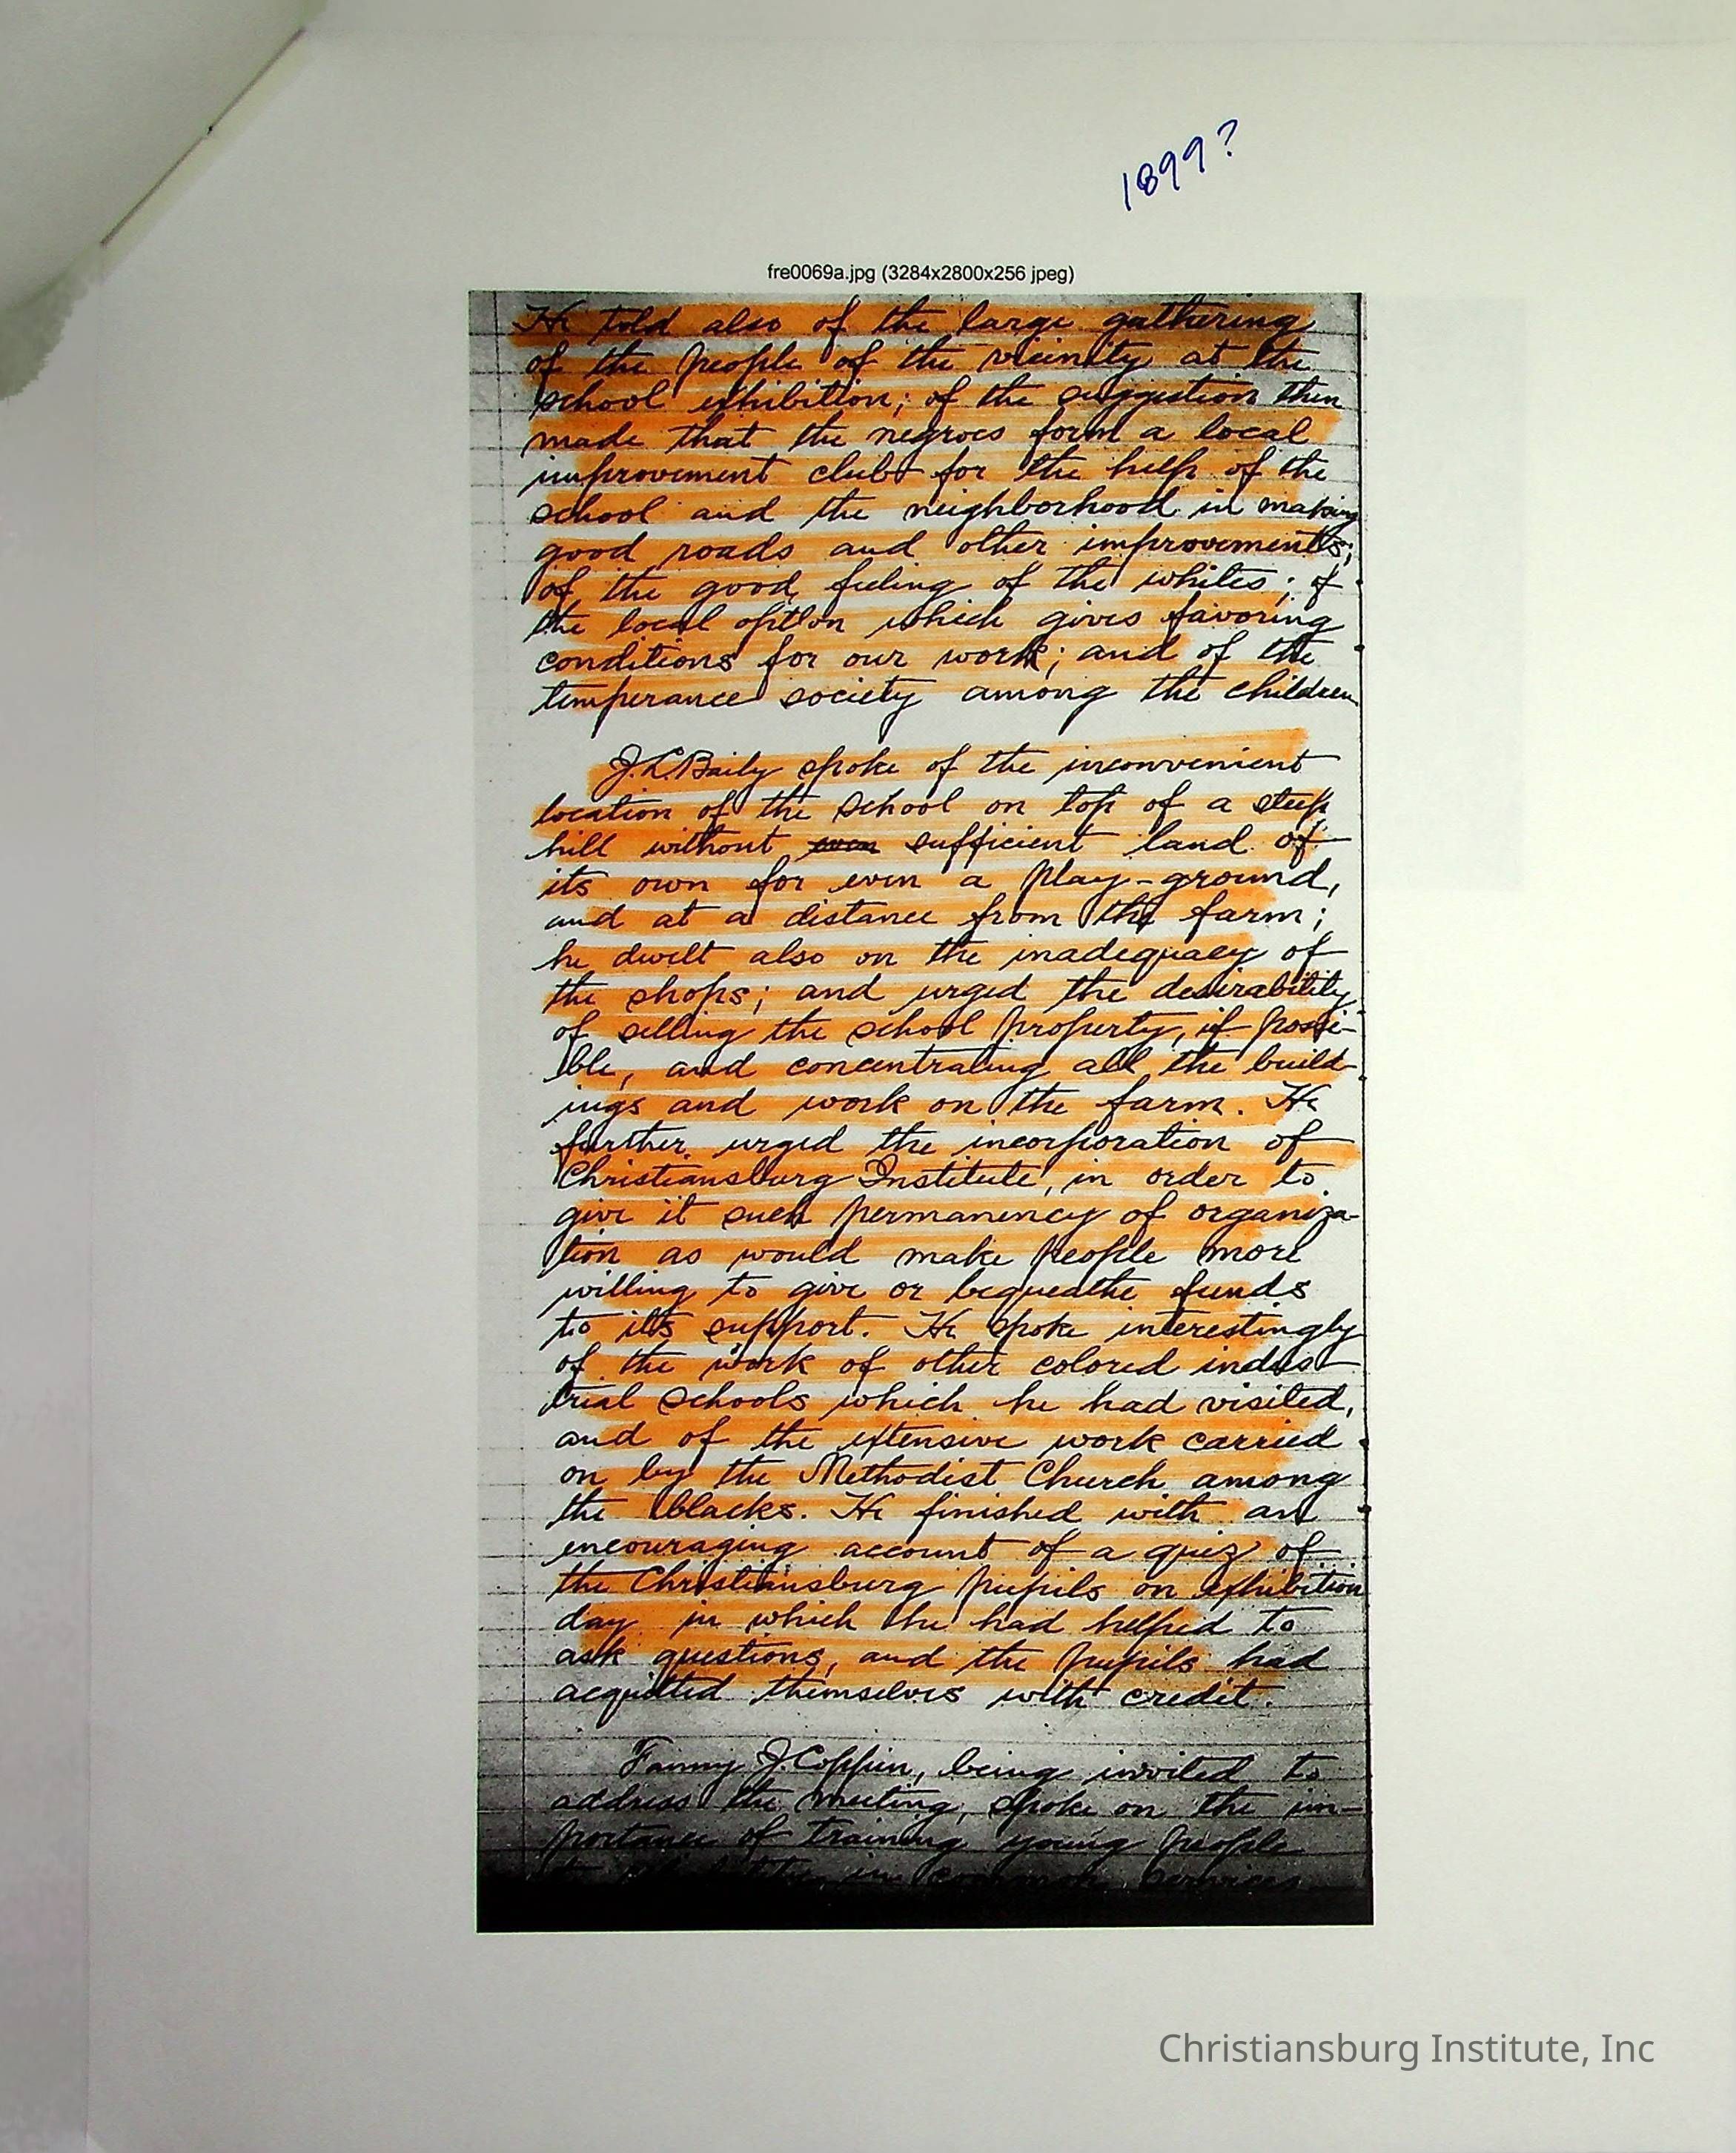 1899?
fre0069a.jpg (3284x2800x256 jpeg)
He told also of the large gathering
of the people of the vicinity at the
school exhibition; of the suggestion then
made that the negroes form a local
improvement club for the help of the
school and the neighborhood in making
good roads and other improvements;
of the good feeling of the whites; of
the local option which gives favoring
conditions for our work; and of the
temperance society among the children.
J. L. Baily spoke of the inconvenient
location of the school on top of a steep
hill without even sufficient land of
its own for even a play-ground,
and at a distance from the farm;
he dwelt also on the inadequacy of
the shops; and urged the desirability
of selling the school property, if possi-
ble, and concentrating all the build-
ings and work on the farm. He
further urged the incorporation of
Christiansburg Institute, in order to
give it such permanency of organiza-
tion as would make people more
willing to give or bequeathe funds
to its support. He spoke interestingly
of the work of other colored indus-
trial schools which he had visited,
and of the extensive work carried
on by the Methodist Church among
the blacks. He finished with an
encouraging account of a quiz of
the Christiansburg pupils on exhibition
day in which he had helped to
ask questions, and the pupils had
acquitted themselves with credit.
Fanny J. Coppin, being invited to
address the meeting, spoke on the im-
portance of training young people
in common services
Christiansburg Institute, Inc